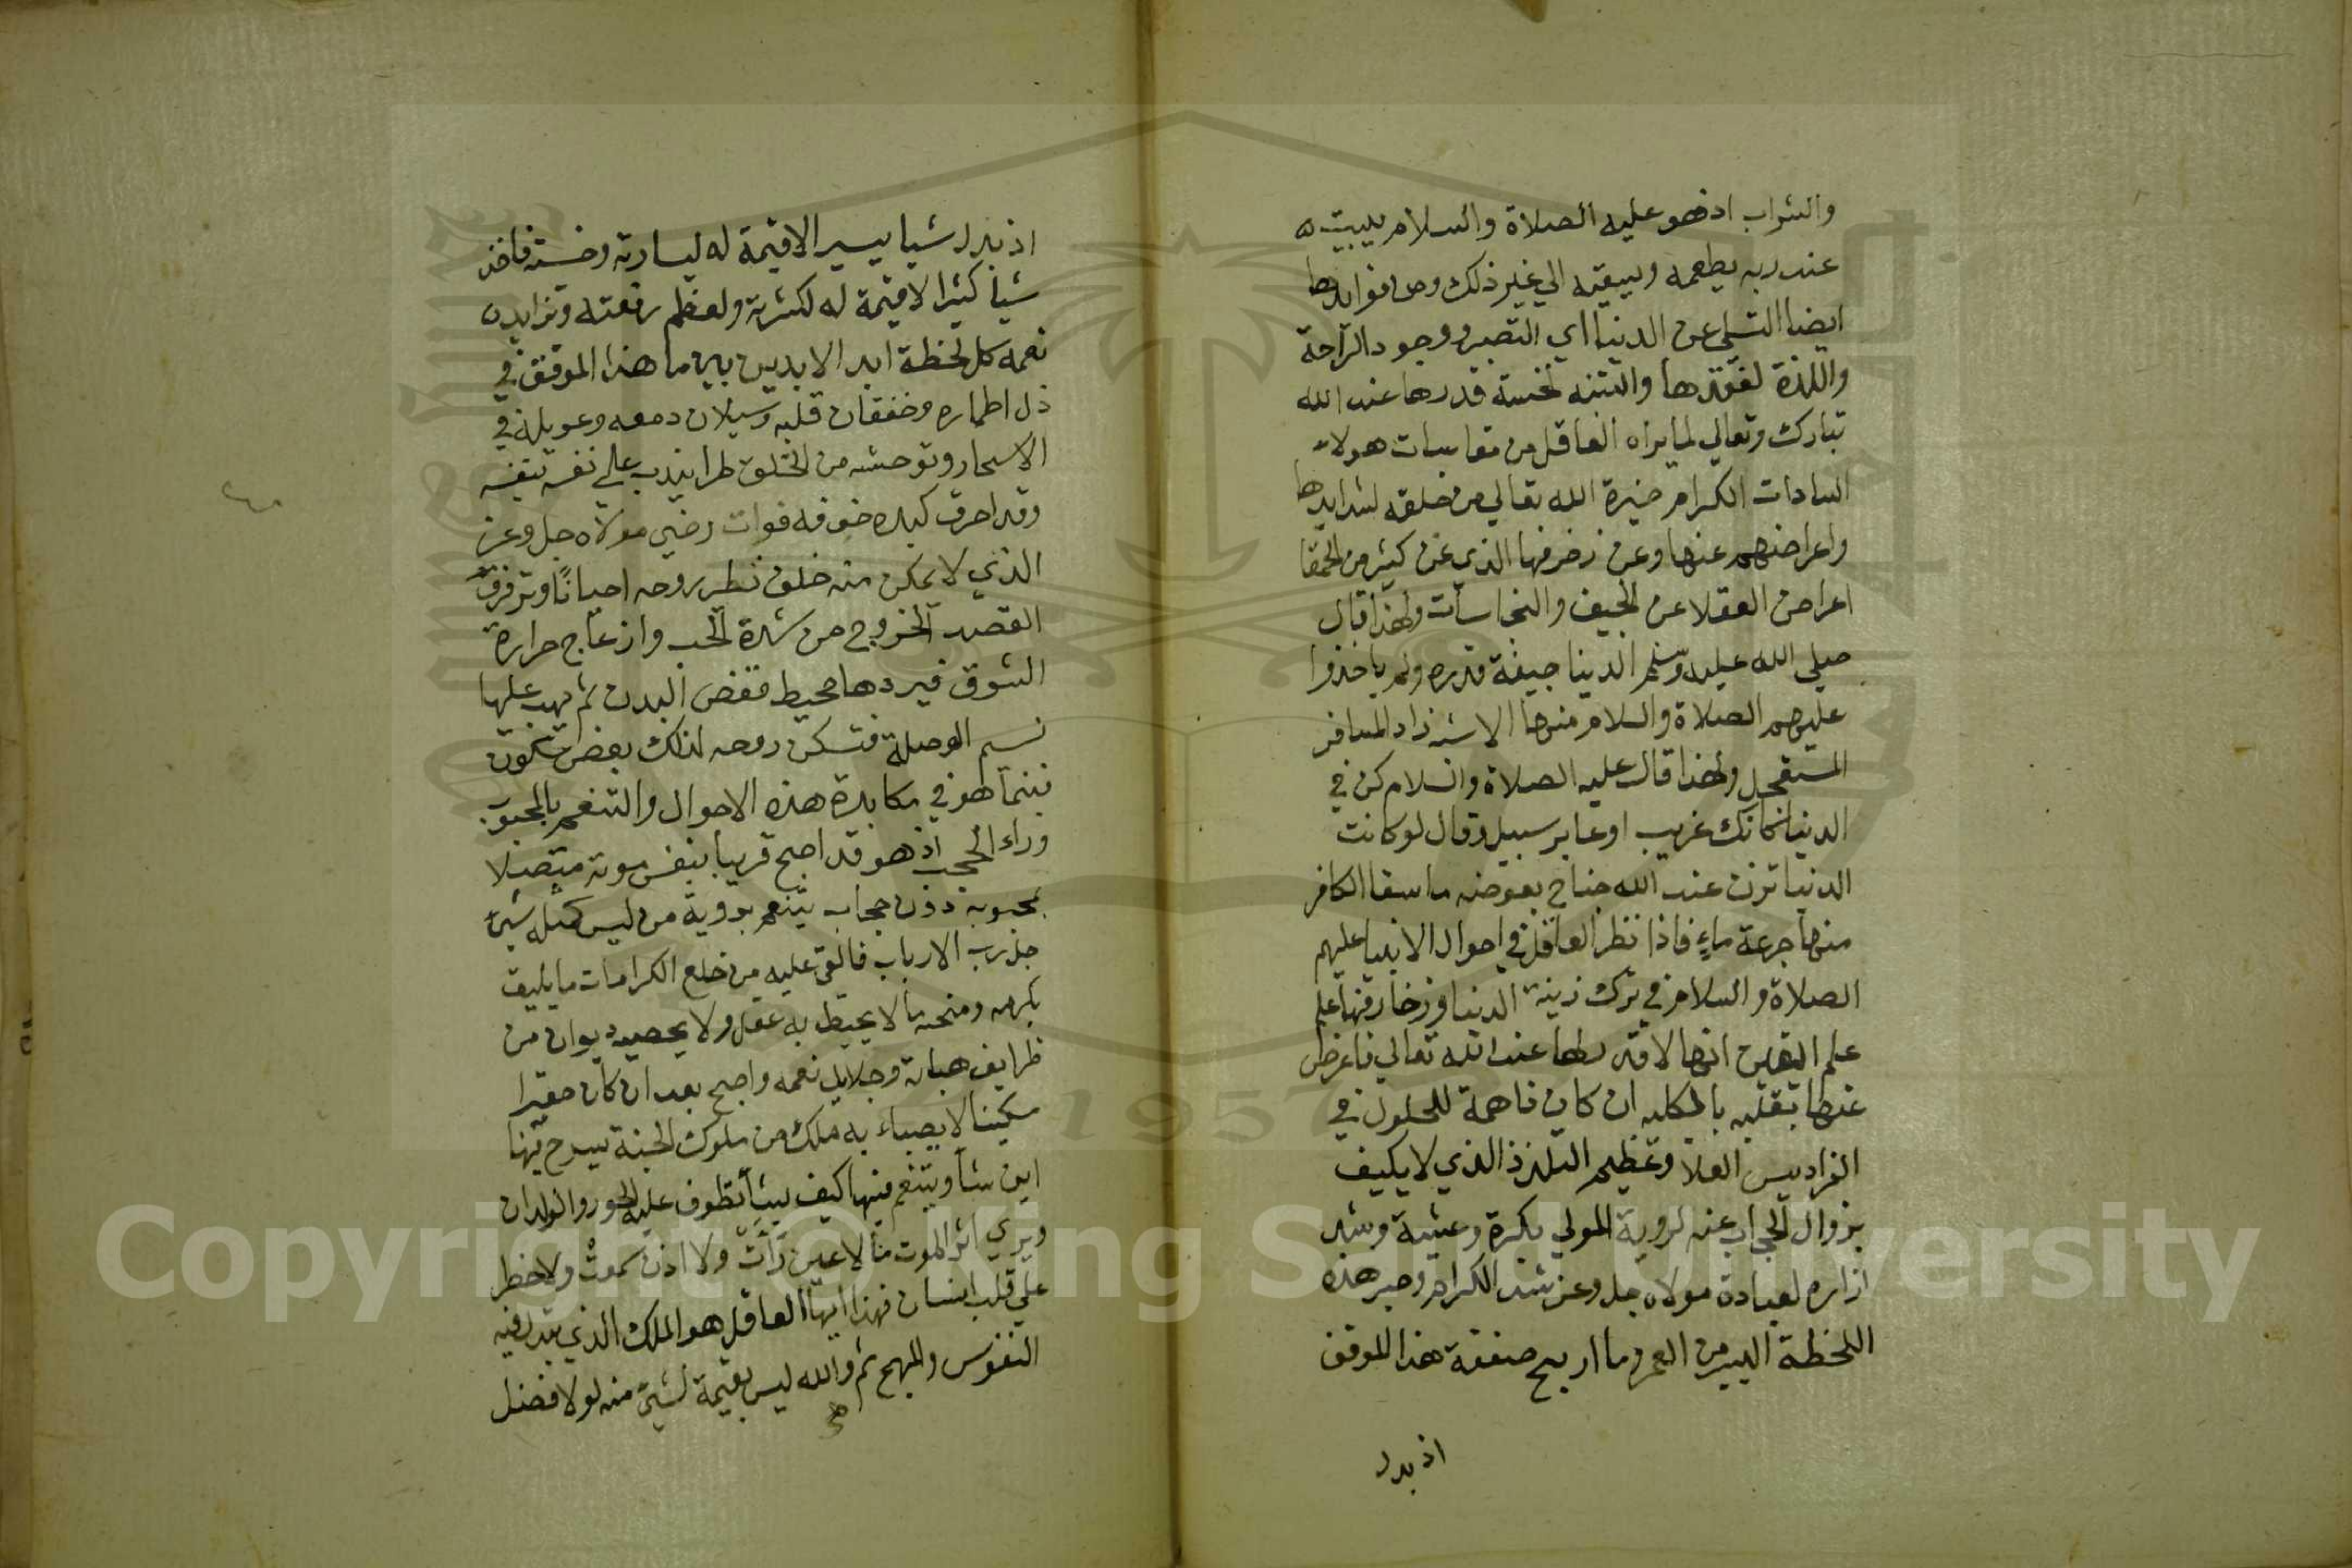 والشراب اذ هو عليه الصلاة والسلام يبيت
عند ربه يطعمه ويسقيه الي غير ذلك ومن فوايدها
ايضا التسلي عن الدنيا اي التصبر ووجود الراحة
واللذة لفقدها والتنبه لخسة قدرها عند الله
تبارك وتعالي لما يراه العاقل من مقاسات هولاء
السادات الكرام خيرة الله تعالي من خلقه لشدايدها
واعراضهم عنها وعن زخرفها الذي غر كثير من الحمقا
اعراض العقلا عن الجيف والنجاسات ولهذا قال
صلي الله عليه وسلم الدنيا جيفة قذره ولم ياخذوا
عليهم الصلاة والسلام منها الا شبه زاد المسافر
المستعجل ولهذا قال عليه الصلاة والسلام كن في
الدنيا كانك غريب او عابر سبيل وقال لو كانت
الدنيا تزن عند الله جناح بعوضه ما سقا الكافر
منها جرعة ماء فاذا نظر العاقل في احوال الانبيا عليهم
الصلاة والسلام في ترك زينة الدنيا وزخارفها علم
علم اليقين انها لا قدر لها عند الله تعالي فاعرض
عنها بقلبه بالكليه ان كان ذا همة للحلول في
الفراديس العلا وعظيم التلذذ الذي لا يكيف
بزوال الحجاب عنه لروية المولي بكرة وعشية وشد
ازاره لعبادة مولاه جل وعز شد الكرام وصبر هذه
اللحظة اليسير من العمر وما اربح صفقة هذا الموفق
اذ بدل
اذ بدل شيا يسير الا قيمة له ليسارته وخسته فاخذ
شيا كثيرا لا قيمة له لكثرته ولعظم رفعته وتزايد
نعمه كل لحظة ابد الابدين بينما هذا الموفق في
ذل اطماره وخفقان قلبه وسيلان دمعه وعويله في
الاسحار وتوحشه من الخلق طرا يندب علي نفسه بنفسه
وقد احرق كبده خوف فوات رضي مولاه جل وعز
الذي لا يمكن منه خلف تطير روحه احيانا وترفرف
القصد الخروج من شدة الحب وازعاج حرارة
الشوق فيردها محيط قفص البدن ثم يهب عليها
نسيم الوصلة فتسكن روحه لذلك بعض سكون
فبينما هو في مكابدة هذه الاحوال والتنعم بالمحبوب
وراء الحجب اذ هو قد اصبح قريبا بنفس موته متصلا
بمحبوبه دون حجاب يتنعم بروية من ليس كمثله شيء
جل رب الارباب فالقي عليه من خلع الكرامات ما يليق
بكرمه ومنحه ما لا يحيط به عقل ولا يحصيه ديوان من
ظرايف هباته وجلايل نعمه واصبح بعد ان كان حقيرا
مسكينا لا يعباء به ملك من ملوك الجنة يسرح فيها
اين شا ويتنعم فيها كيف يشأ تطوف عليه الحور والولدان
ويري اثر الموت ما لا عين رات ولا اذن سمعت ولا خطر
علي قلب انسان فهذا ايها العاقل هو الملك الذي تبذل فيه
النفوس والمهج ثم والله ليس بقيمة لشيء منه لولا فضل